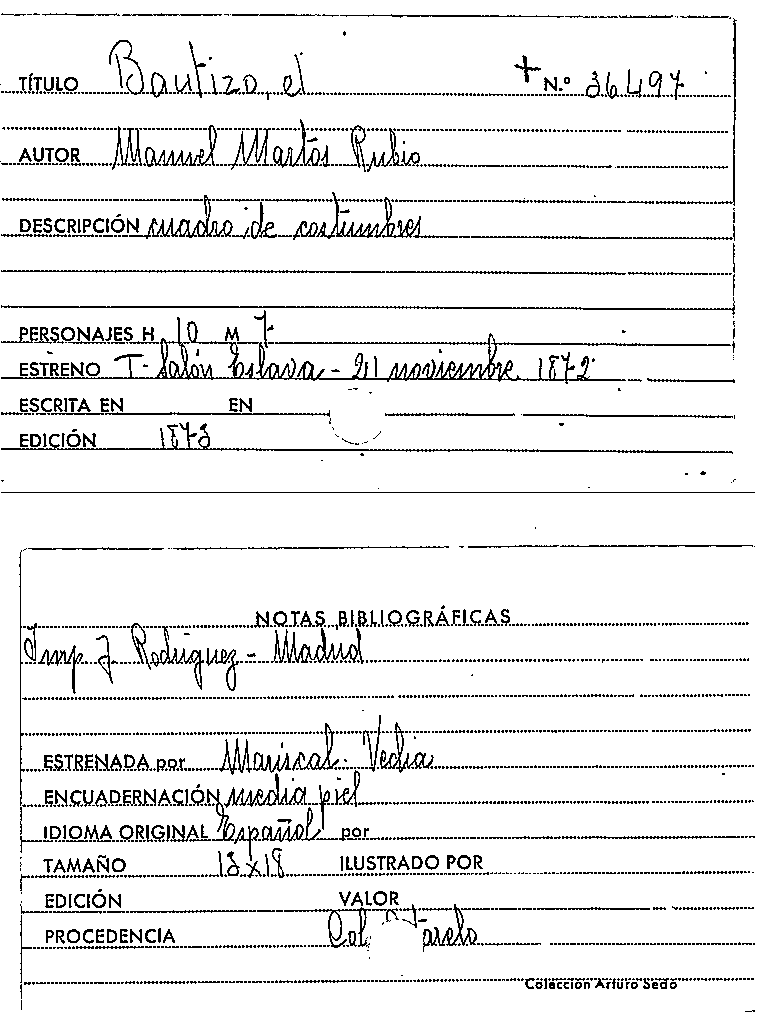 TÍTULO Bautizo, el + N.º 36497
AUTOR Manuel Martos Rubio
DESCRIPCIÓN cuadro de costumbres
PERSONAJES H 10 M 7
ESTRENO T. Salón Eslava - 21 noviembre 1872
ESCRITA EN EN
EDICIÓN 1873
NOTAS BIBLIOGRÁFICAS
Imp J. Rodriguez - Madrid
ESTRENADA por Mariscal - Vedia
ENCUADERNACIÓN media piel
IDIOMA ORIGINAL Español por
TAMAÑO 13x18 ILUSTRADO POR
EDICIÓN VALOR
PROCEDENCIA Col.
Colección Arturo Sedó